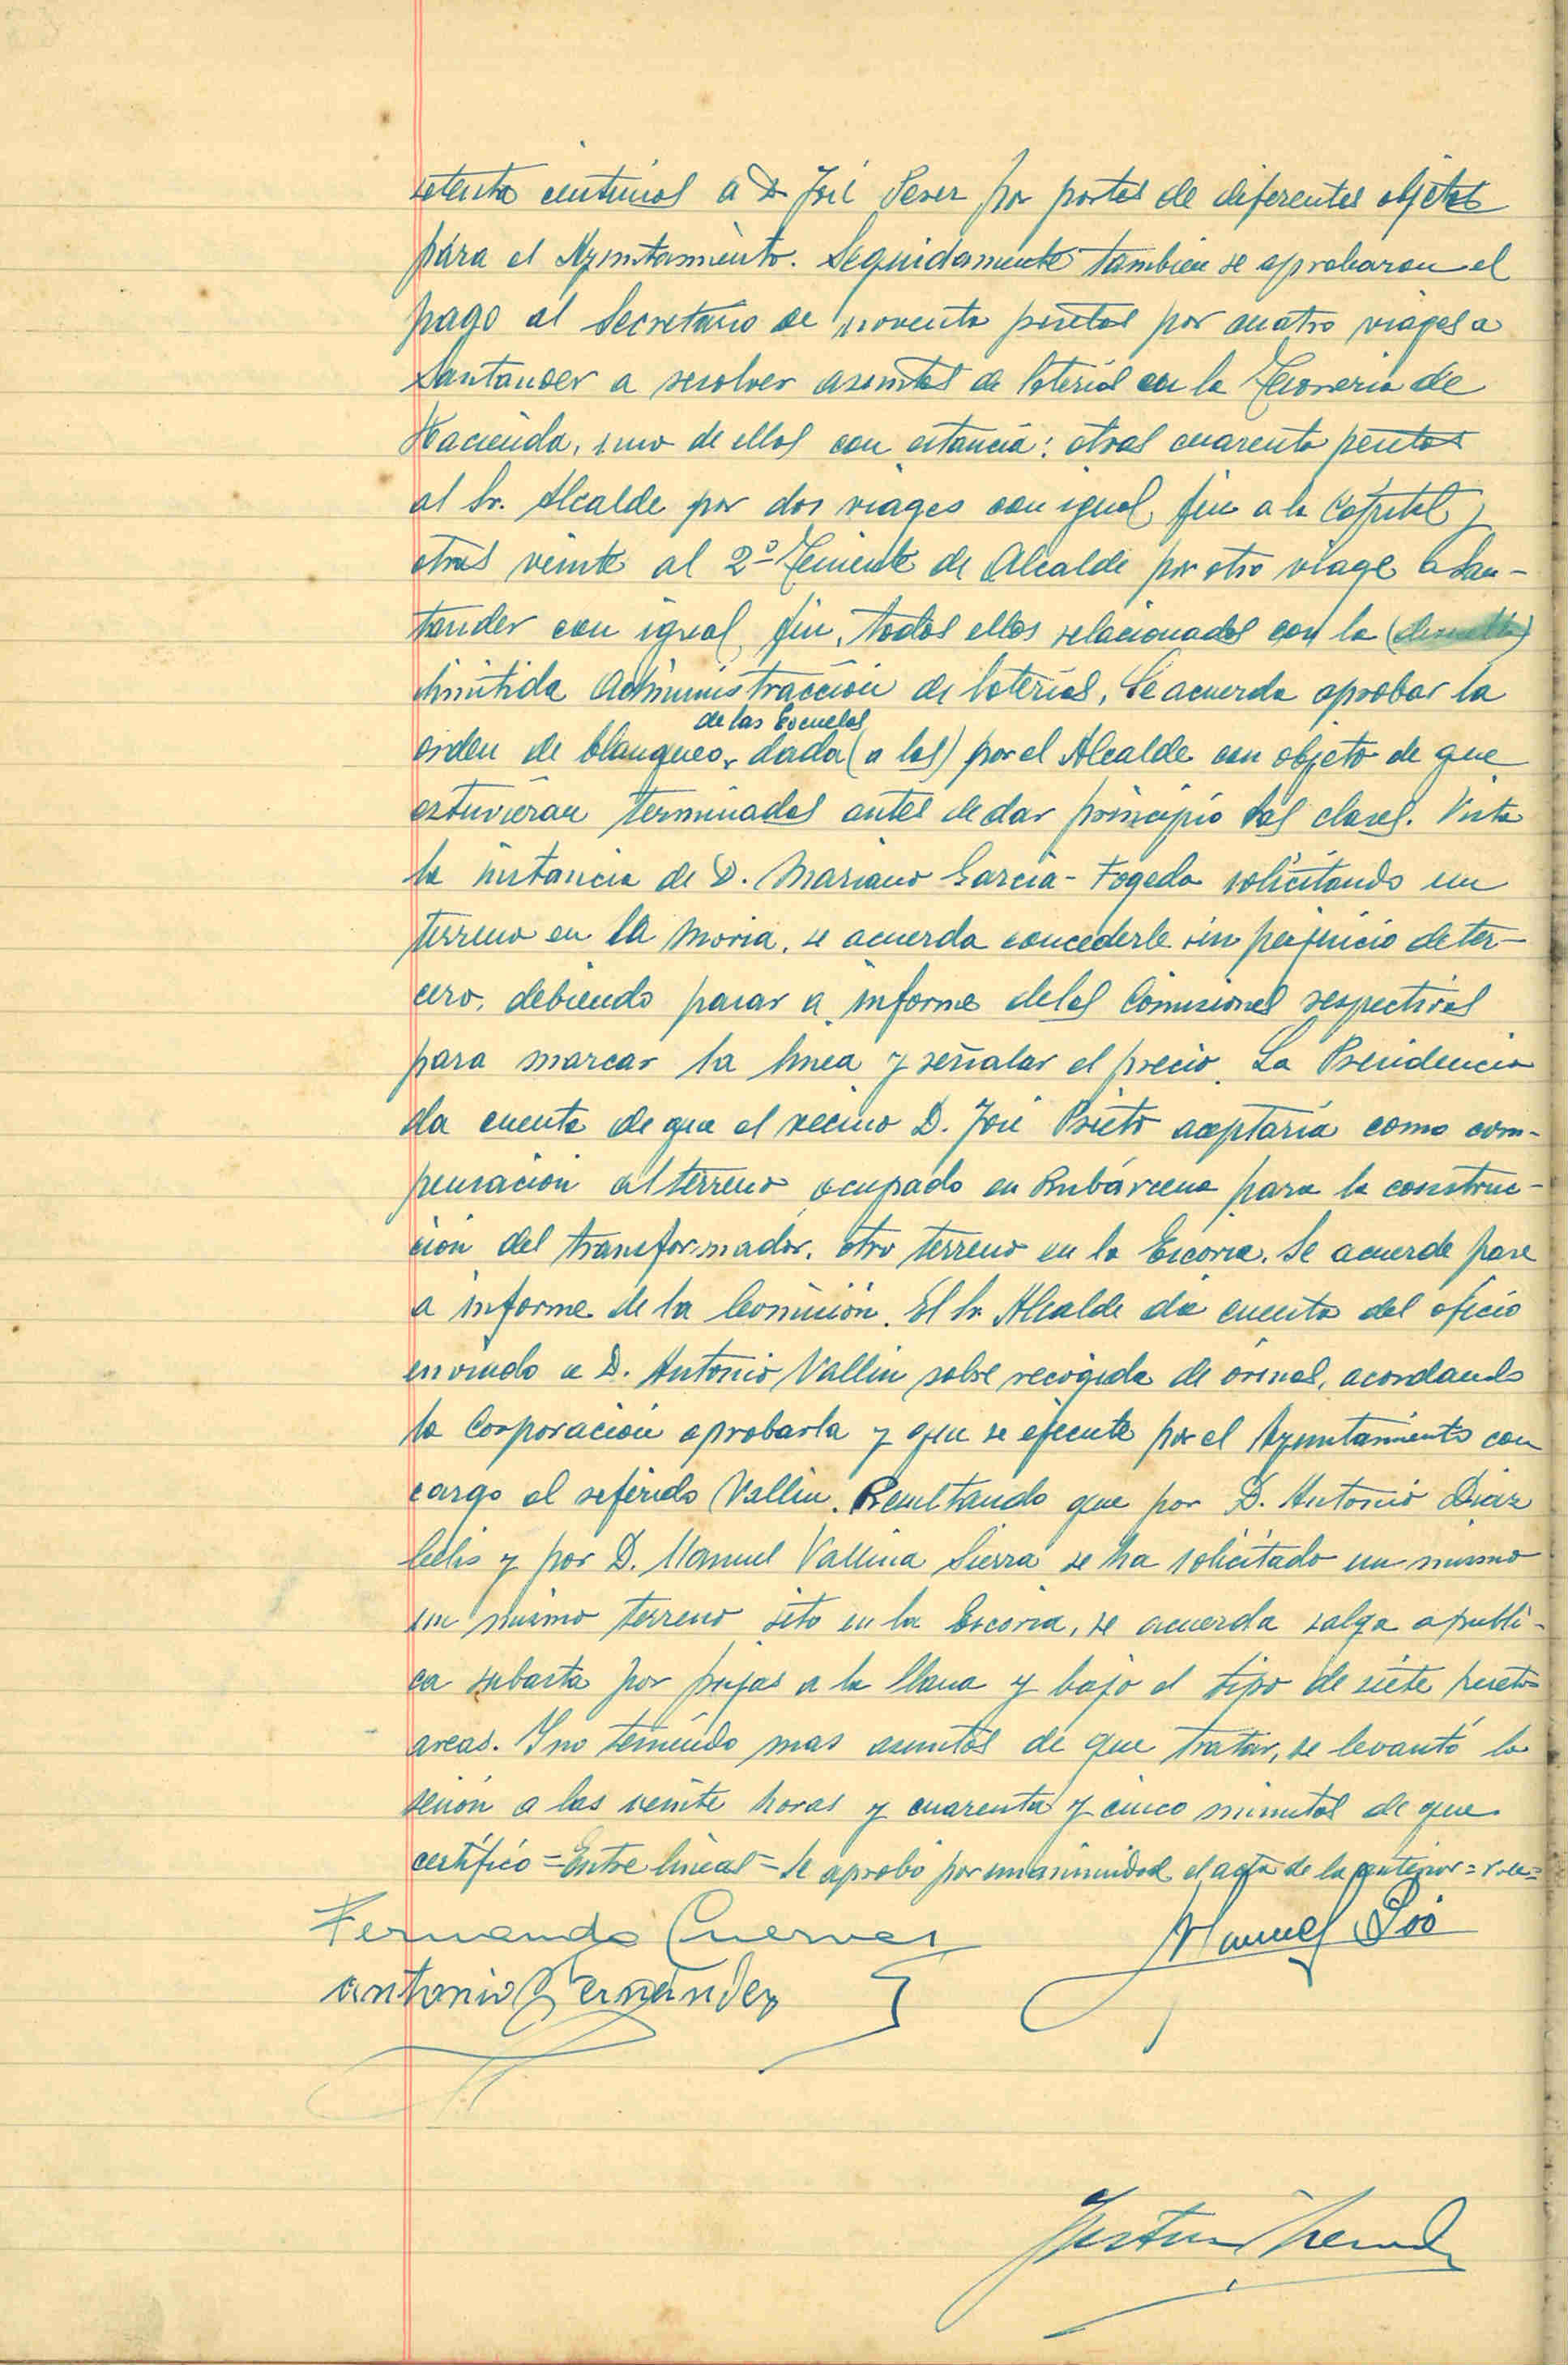 setenta centimos a D. José Perez por portes de diferentes objetos
para el Ayuntamiento. Seguidamente tambien se aprobaron el
pago al Secretario de noventa pesetas por cuatro viages a
Santander a resolver asuntos de loterias en la Tesoreria de
Hacienda, uno de ellos con estancia: otras cuarenta pesetas
al Sr. Alcalde por dos viages con igual fin a la Capital y
otras veinte al 2º Teniente de Alcalde por otro viage a San-
tander con igual fin, todos ellos relacionados con la
dimitida Administracción de loterías. Se acuerda aprobar la
de las Escuelas
orden de blanqueo, dada (a las) por el Alcalde con objeto de que
estuvieran terminadas antes de dar principio las clases. Vista
la instancia de D. Mariano Garcia-Fogeda solicitando un
terreno en la Moria, se acuerda concederle sin perjuicio de ter-
cero, debiendo pasar a informe de las Comisiones respectivas
para marcar la linea y señalar el precio. La Presidencia
da cuenta de que el vecino D. José Prieto aceptaría como com-
pensacion al terreno ocupado en Rubárcena para la construc-
cion del transformador, otro terreno en la Escoria. Se acuerda pase
a informe de la Comisión. El Sr. Alcalde da cuenta del oficio
enviado a D. Antonio Vallin sobre recogida de orinas, acordando
la Corporación aprobarla y que se ejecute por el Ayuntamiento con
cargo al referido Vallin. Resultando que por D. Antonio Diaz
Celis y por D. Manuel Vallina Sierra se ha solicitado un mismo
un mismo terreno sito en la Escoria, se acuerda salga a publi-
ca subasta por pujas a la llana y bajo el tipo de siete pesetas
areas. Y no teniendo mas asuntos de que tratar, se levantó la
sesión a las veinte horas y cuarenta y cinco minutos de que
certifico = Entre lineas = Se aprobó por unanimidad el acta de la anterior =
Fernando Cuevas
Manuel Poó
Antonio Fernández